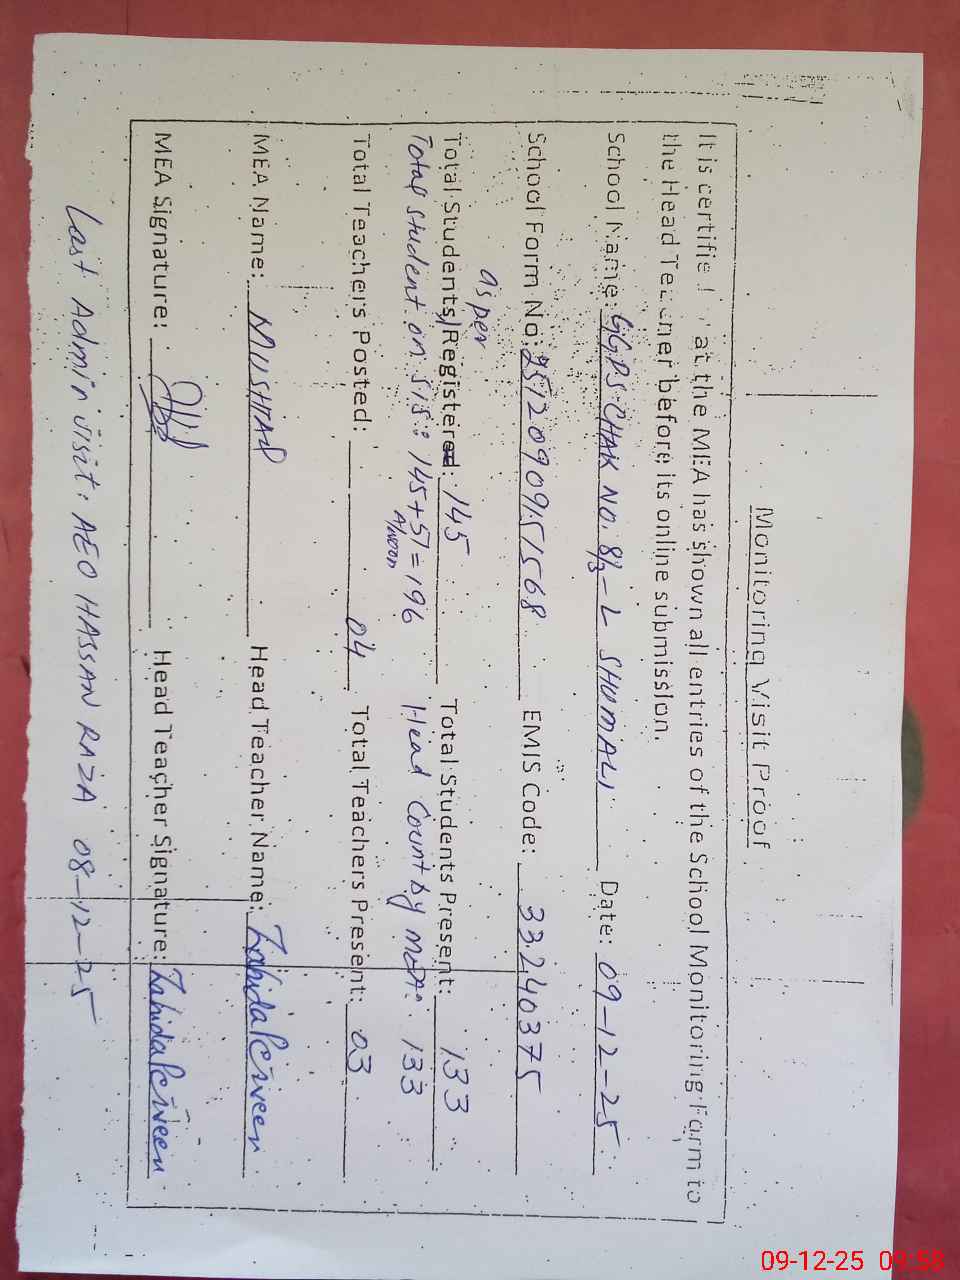 Monitoring Visit Proof
It is certified that the MEA has shown all entries of the School Monitoring Form to
the Head Teacher before its online submission.
School Name: GGPS CHAK NO. 8/3-L SHUMALI Date: 09-12-25
School Form No: 2512090951568 EMIS Code: 33240375
as per
Total Students Registered: 145 Total Students Present: 133
Total student on SIS: 145+51=196 Head Count by MEA: 133
Total Teachers Posted: 04 Total Teachers Present: 03
MEA Name: MUSHTAQ Head Teacher Name: Zahida Perveen
MEA Signature: Head Teacher Signature: Zahida Perveen
Last Admin visit: AEO HASSAN RAZA 08-12-25
09-12-25 09:58